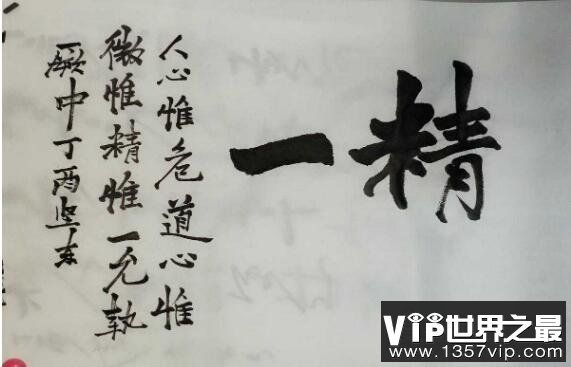 精一
人心惟危道心惟
微惟精惟一允執
厥中丁酉坚东
VIP世界之最
www.1357vip.com